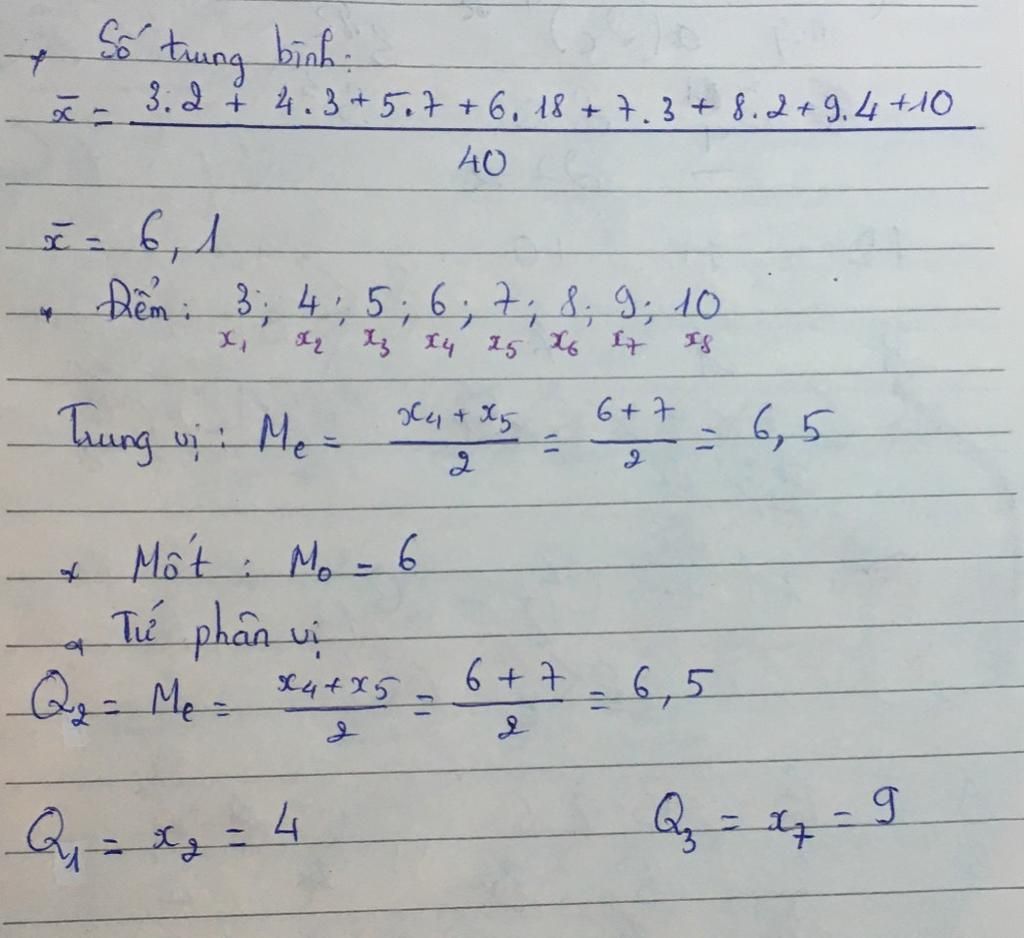 * Số trung bình:
x̄ = (3.2 + 4.3 + 5.7 + 6.18 + 7.3 + 8.2 + 9.4 + 10) / 40
x̄ = 6,1
* Điểm: 3; 4; 5; 6; 7; 8; 9; 10
x₁ x₂ x₃ x₄ x₅ x₆ x₇ x₈
Trung vị: Mₑ = (x₄ + x₅) / 2 = (6 + 7) / 2 = 6,5
* Mốt: M₀ = 6
* Tứ phân vị
Q₂ = Mₑ = (x₄ + x₅) / 2 = (6 + 7) / 2 = 6,5
Q₁ = x₂ = 4 Q₃ = x₇ = 9